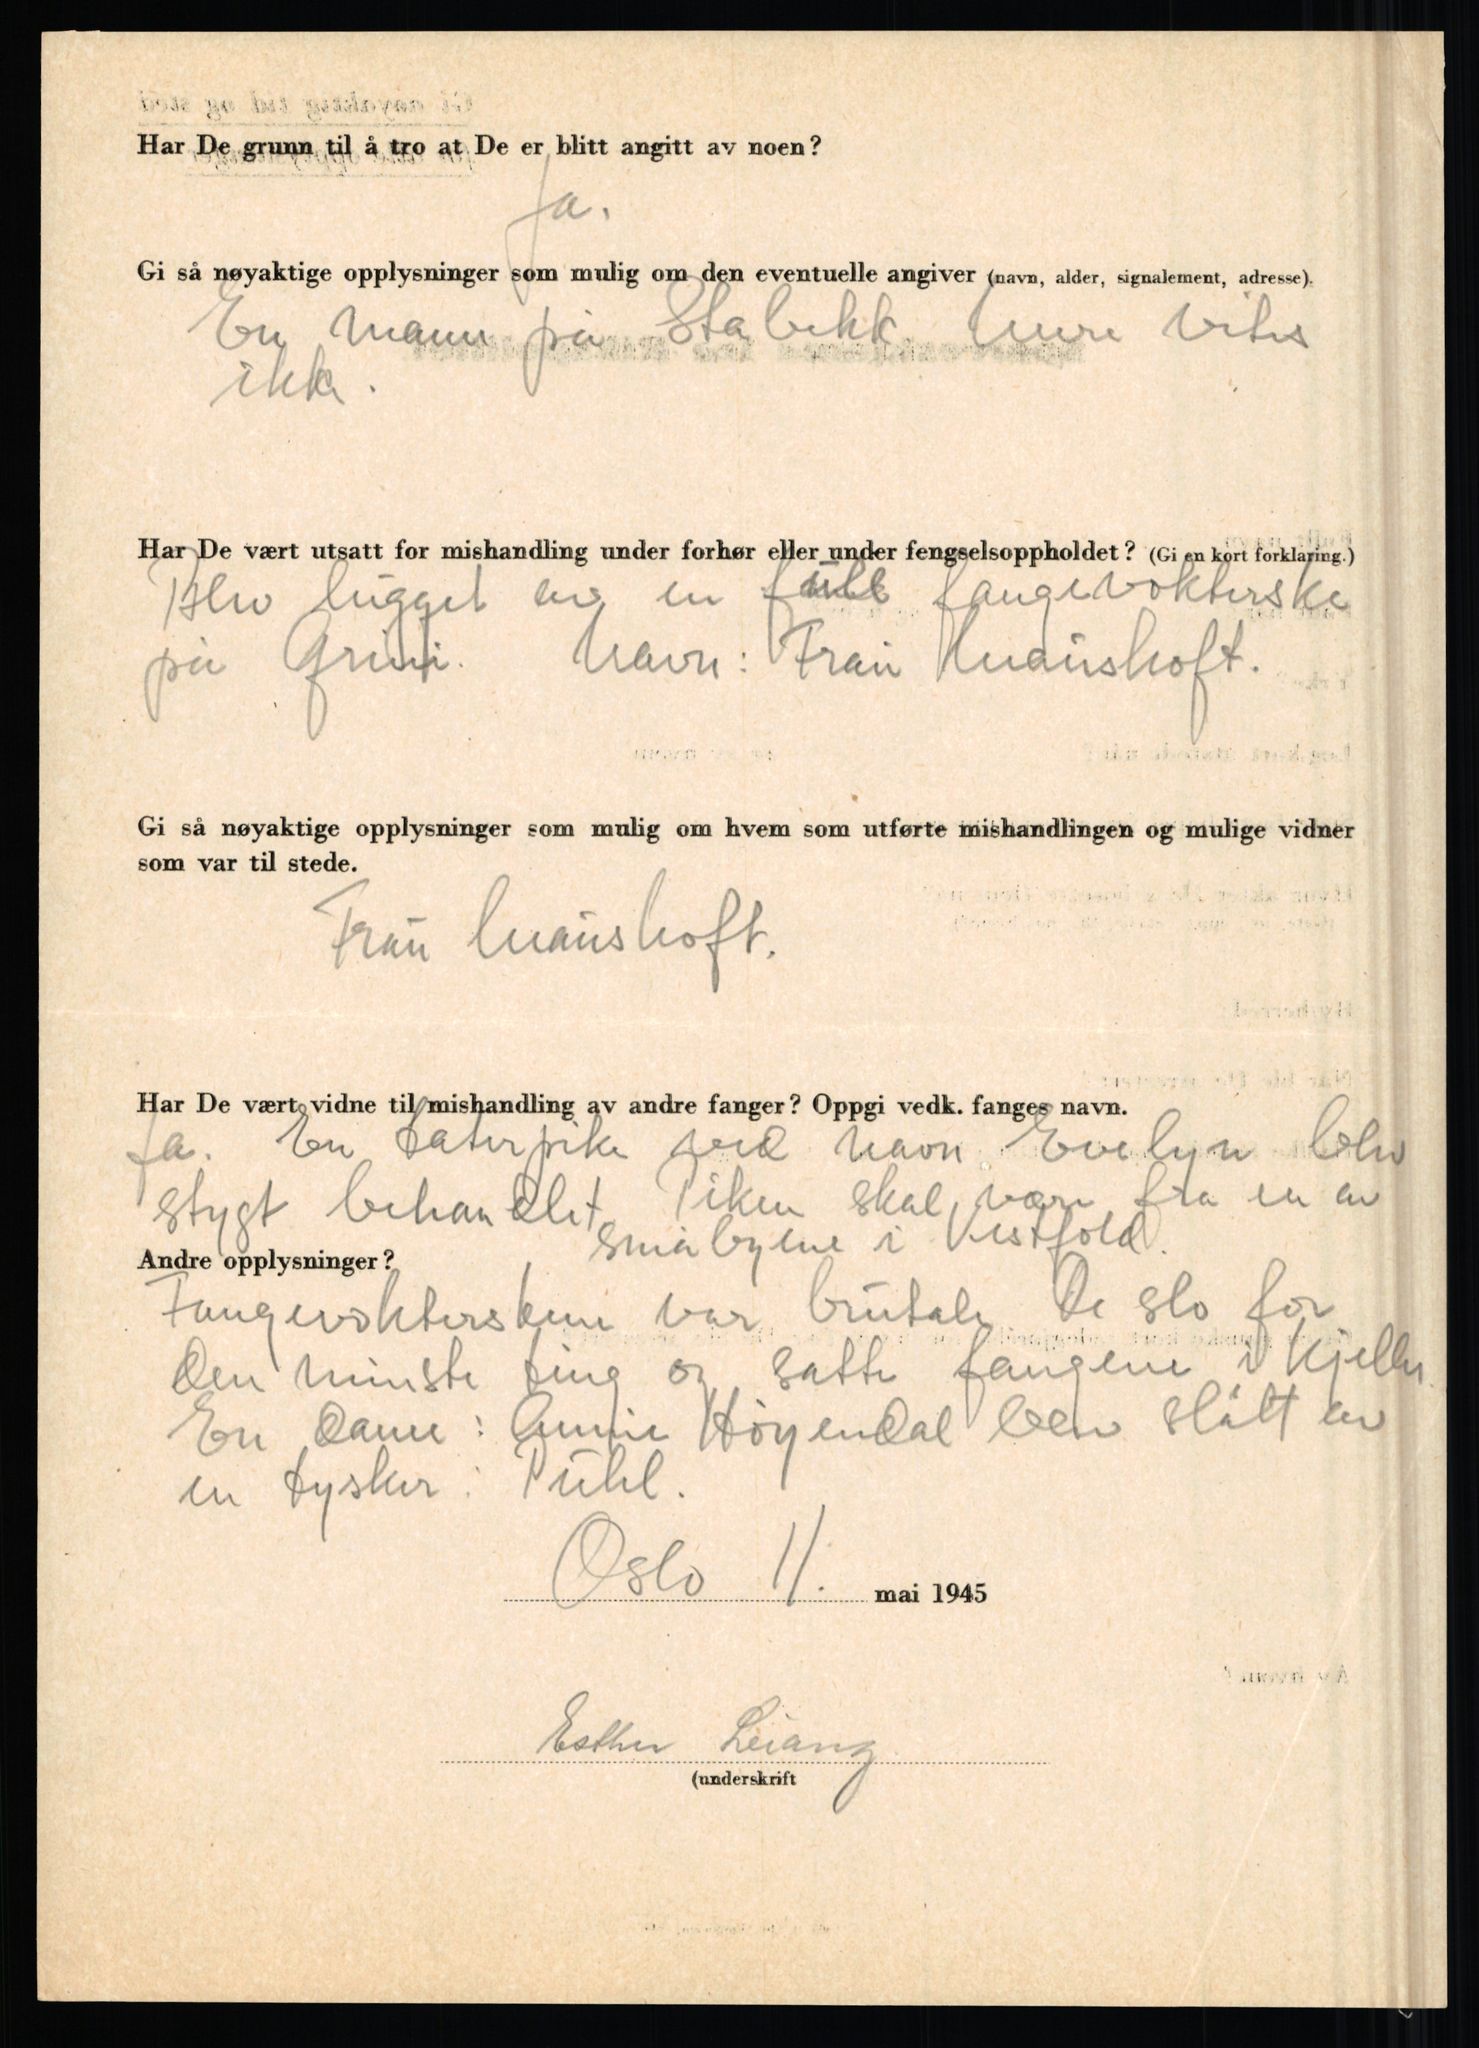 Har De grunn til å tro at De er blitt angitt av noen?
Ja.
Gi så nøyaktige opplysninger som mulig om den eventuelle angiver (navn, alder, signalement, adresse).
En mann på Stabekk. Mere vites
ikke.
Har De vært utsatt for mishandling under forhør eller under fengselsoppholdet? (Gi en kort forklaring.)
Blev lugget av en full fangevokterske
på Grini. Navn: Frau Maushoft.
Gi så nøyaktige opplysninger som mulig om hvem som utførte mishandlingen og mulige vidner
som var til stede.
Frau Maushoft.
Har De vært vidne til mishandling av andre fanger? Oppgi vedk. fanges navn.
Ja. En taterpike ved navn Evelyn blev
stygt behandlet. Piken skal være fra en av
småbyene i Vestfold.
Andre opplysninger?
Fangevokterskene var brutale. De slo for
den minste ting og satte fangene i kjeller.
En dame: Annie Høyendal blev slått av
en tysker: Pühl.
Oslo 11. mai 1945
Esther Leiang
(underskrift